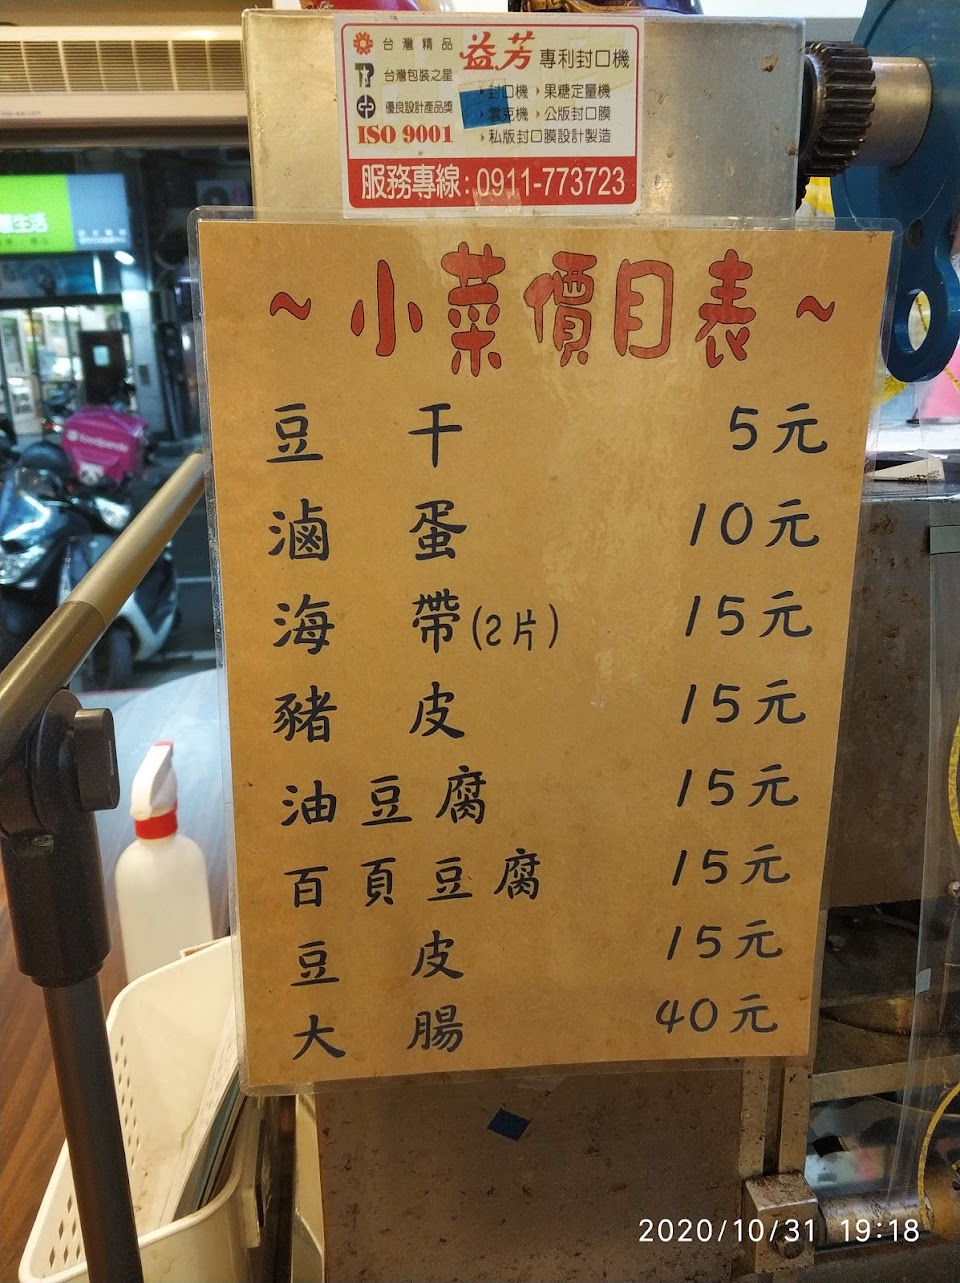 台灣精品
益芳 專利封口機
台灣包裝之星
封口機 果糖定量機
優良設計產品獎
公版封口膜
ISO 9001
私版封口膜設計製造
服務專線：0911-773723
~ 小菜價目表 ~
豆 干 5元
滷 蛋 10元
海 帶(2片) 15元
豬 皮 15元
油豆腐 15元
百頁豆腐 15元
豆 皮 15元
大 腸 40元
生活
foodpanda
2020/10/31 19:18